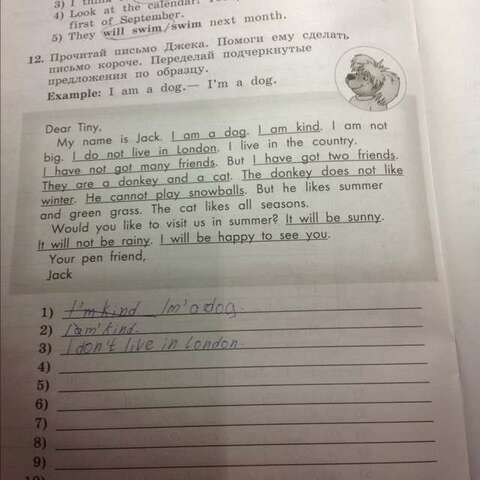 3) I think
4) Look at the calendar.
first of September.
5) They will swim/swim next month.
12. Прочитай письмо Джека. Помоги ему сделать
письмо короче. Переделай подчеркнутые
предложения по образцу.
Example: I am a dog.— I'm a dog.
Dear Tiny,
My name is Jack. I am a dog. I am kind. I am not
big. I do not live in London. I live in the country.
I have not got many friends. But I have got two friends.
They are a donkey and a cat. The donkey does not like
winter. He cannot play snowballs. But he likes summer
and green grass. The cat likes all seasons.
Would you like to visit us in summer? It will be sunny.
It will not be rainy. I will be happy to see you.
Your pen friend,
Jack
1) I'm kind Im'a dog.
2) I am' kind.
3) I don't live in London.
4)
5)
6)
7)
8)
9)